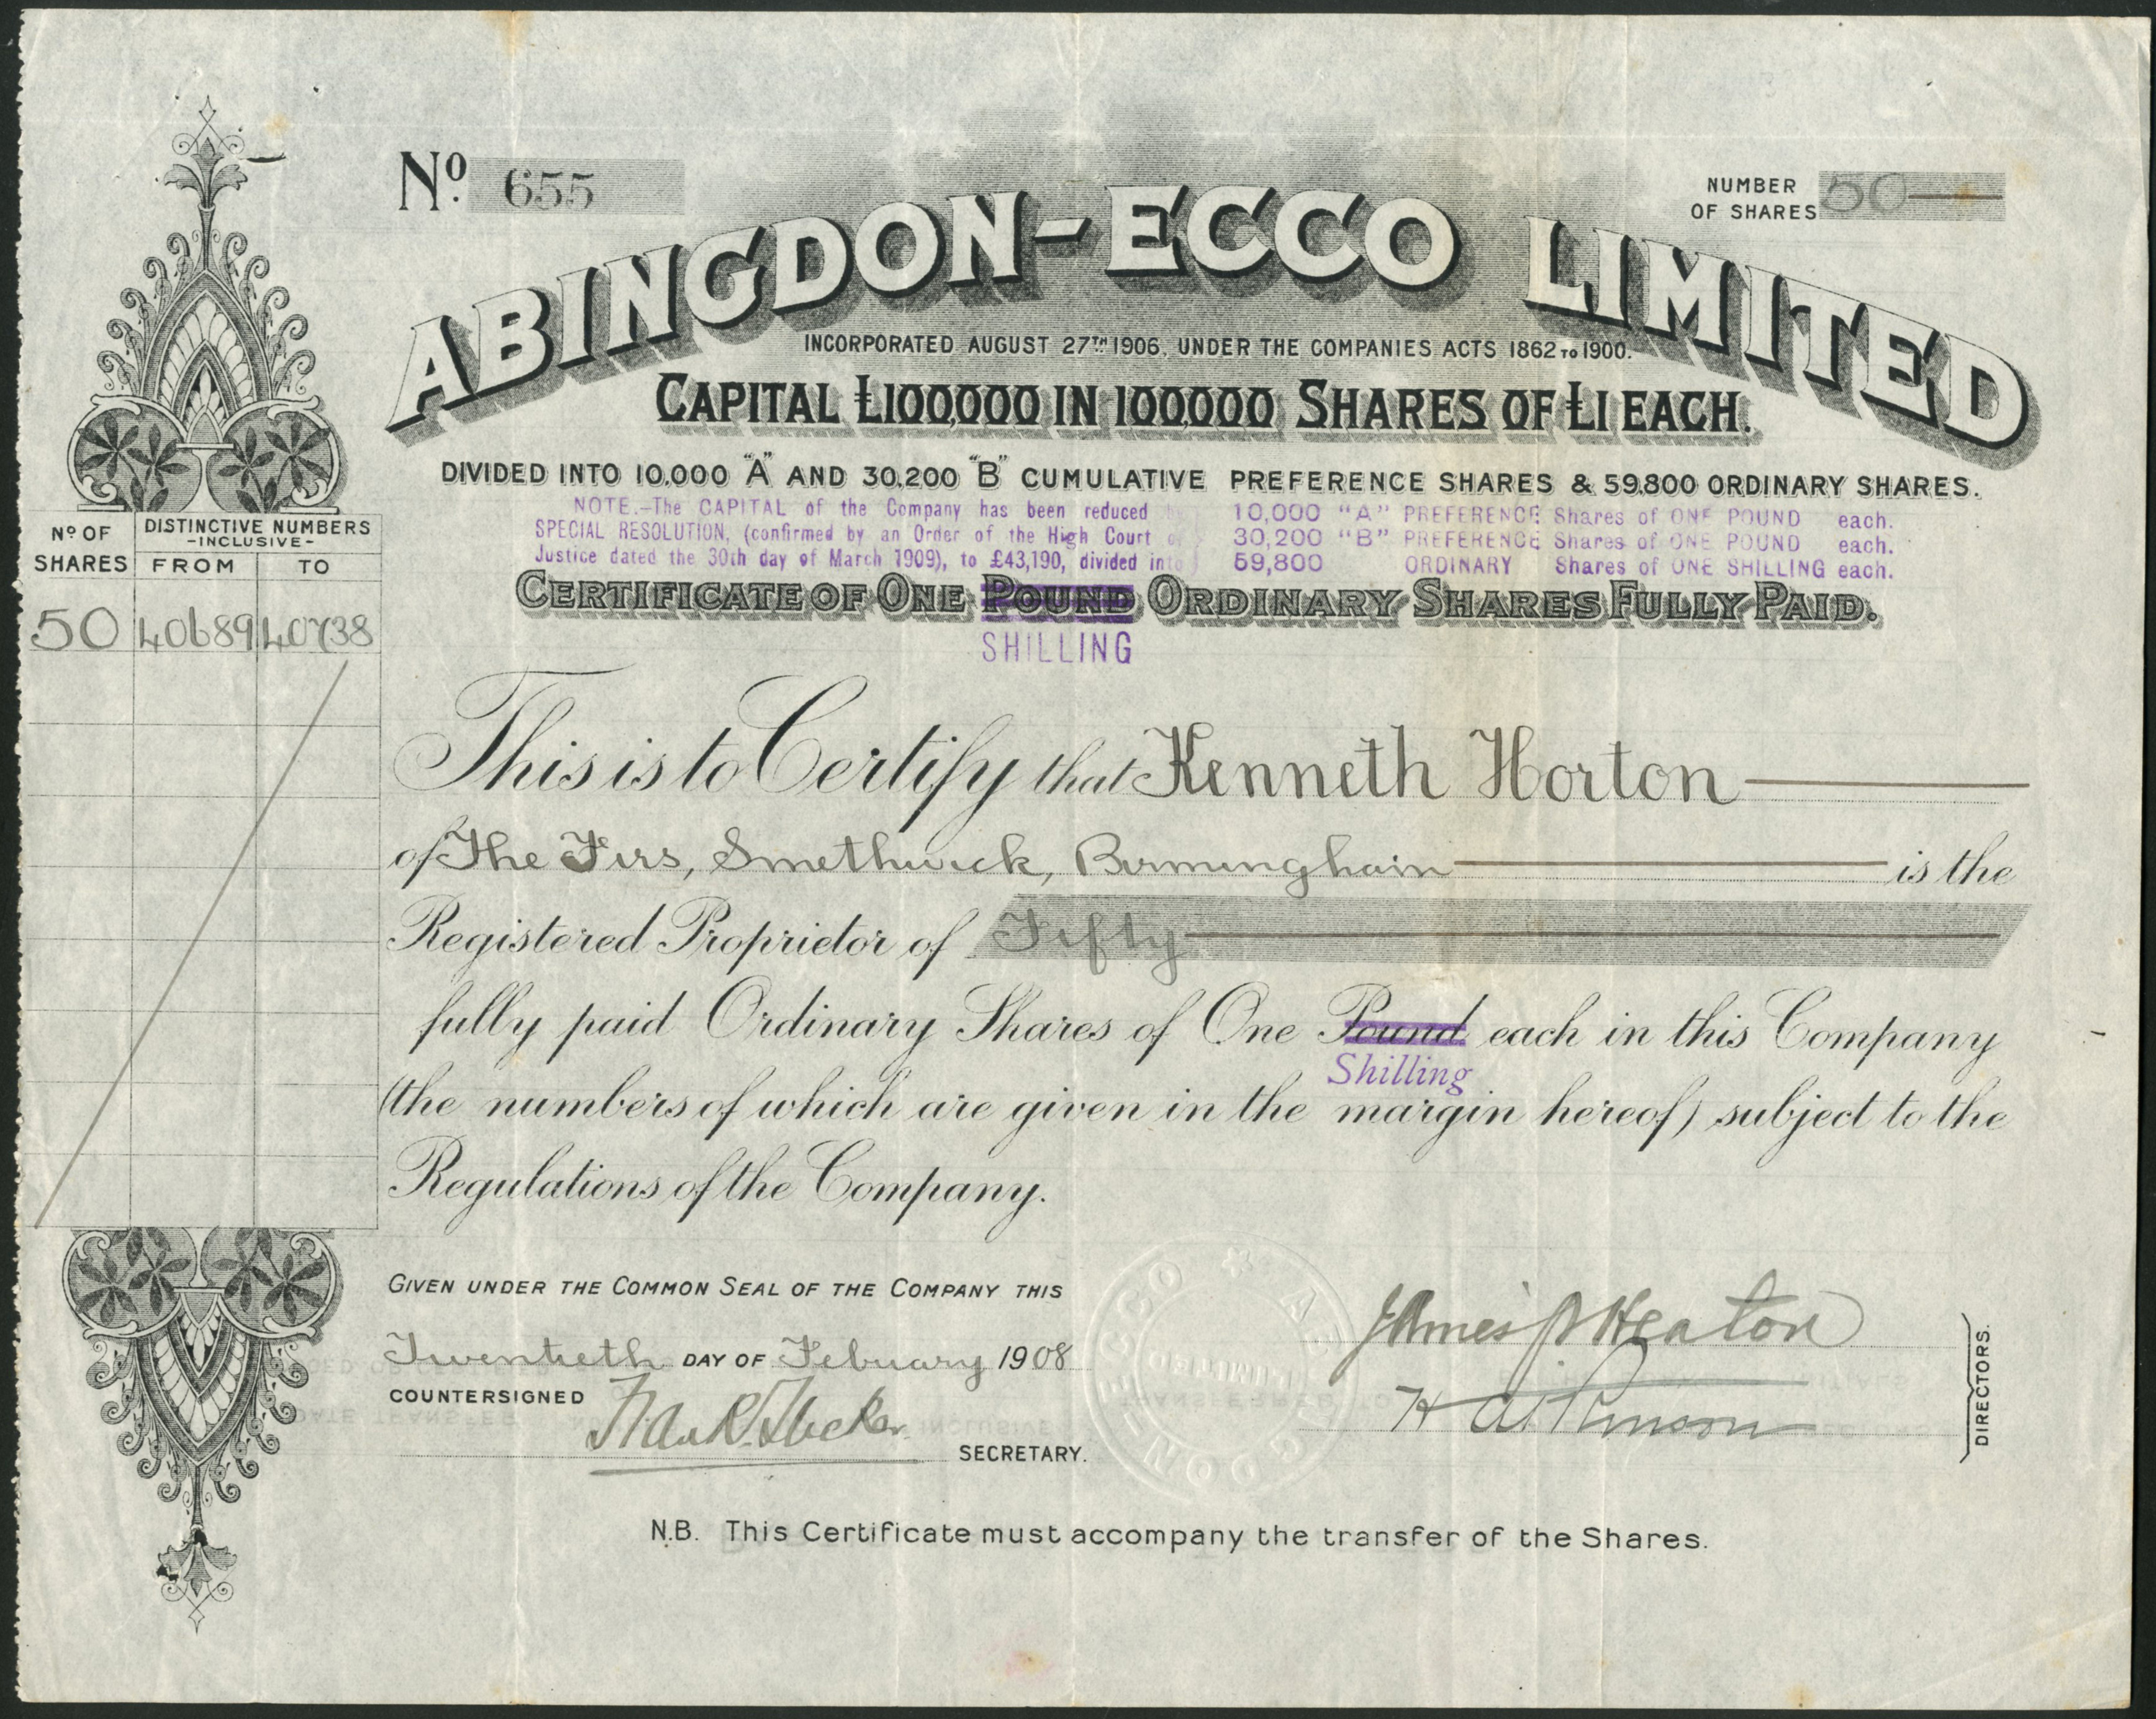 Nº. 655
NUMBER OF SHARES 50
ABINGDON-ECCO LIMITED
INCORPORATED AUGUST 27TH 1906, UNDER THE COMPANIES ACTS 1862 TO 1900.
CAPITAL £100,000 IN 100,000 SHARES OF £1 EACH.
DIVIDED INTO 10,000 "A" AND 30,200 "B" CUMULATIVE PREFERENCE SHARES & 59,800 ORDINARY SHARES.
NOTE.-The CAPITAL of the Company has been reduced
SPECIAL RESOLUTION, (confirmed by an Order of the High Court of
Justice dated the 30th day of March 1909), to £43,190, divided into
10,000 "A" PREFERENCE Shares of ONE POUND each.
30,200 "B" PREFERENCE Shares of ONE POUND each.
59,800 ORDINARY Shares of ONE SHILLING each.
CERTIFICATE OF ONE POUND ORDINARY SHARES FULLY PAID.
SHILLING
Nº OF SHARES
DISTINCTIVE NUMBERS
-INCLUSIVE-
FROM TO
50 40689 40738
This is to Certify that Kenneth Horton
of The Firs, Smethwick, Birmingham is the
Registered Proprietor of Fifty
fully paid Ordinary Shares of One Pound each in this Company
Shilling
(the numbers of which are given in the margin hereof) subject to the
Regulations of the Company.
GIVEN UNDER THE COMMON SEAL OF THE COMPANY THIS
Twentieth DAY OF February 1908
COUNTERSIGNED
SECRETARY.
ABINGDON ECCO
LIMITED
James Heaton
H Atkinson
DIRECTORS.
N.B. This Certificate must accompany the transfer of the Shares.